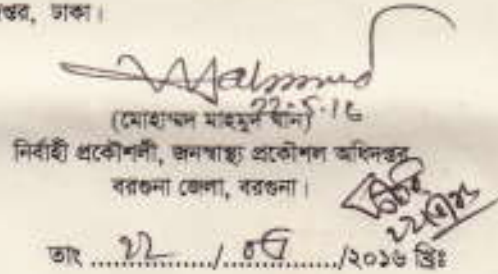 প্তর, ঢাকা।
Mahmud
22.5.16
(মোহাম্মদ মাহমুদ খান)
নির্বাহী প্রকৌশলী, জনস্বাস্থ্য প্রকৌশল অধিদপ্তর
বরগুনা জেলা, বরগুনা।
তাং ...২২.../...০৫.../২০১৬ খ্রিঃ